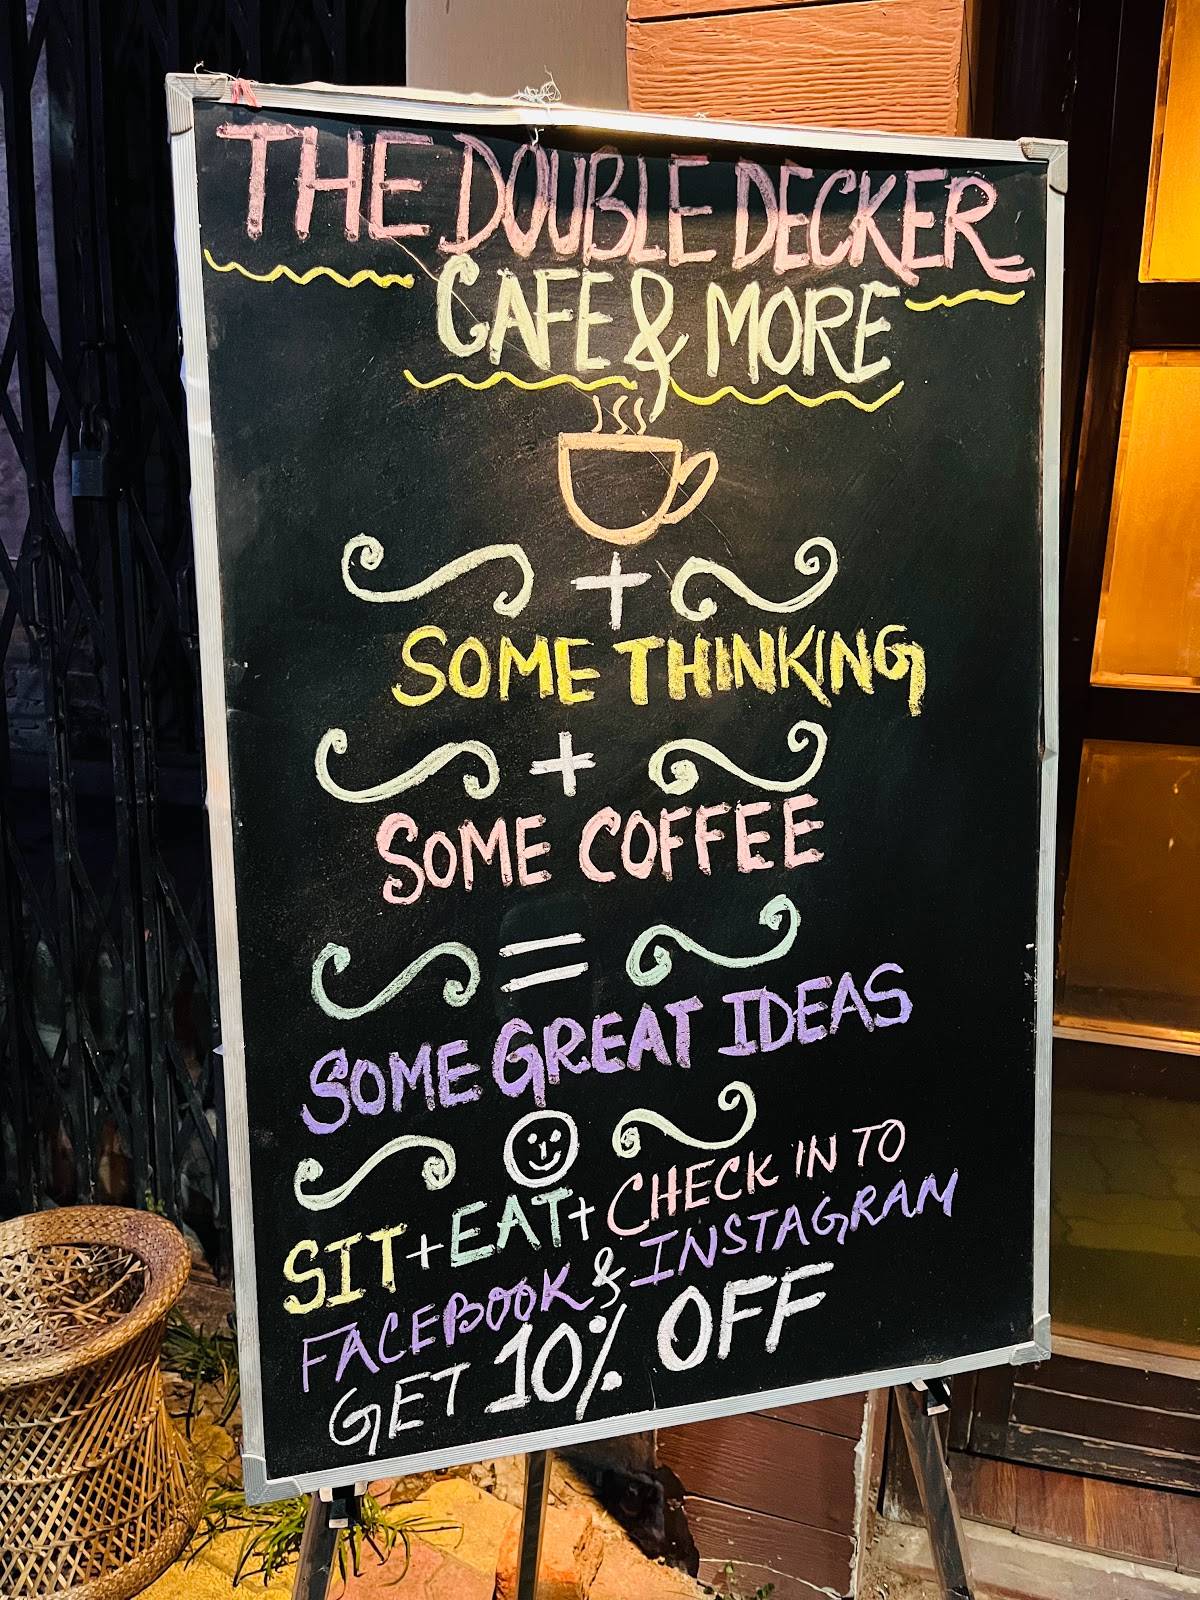 THE DOUBLE DECKER
CAFE & MORE
+
SOME THINKING
+
SOME COFFEE
=
SOME GREAT IDEAS
SIT + EAT + CHECK IN TO
FACEBOOK & INSTAGRAM
GET 10% OFF